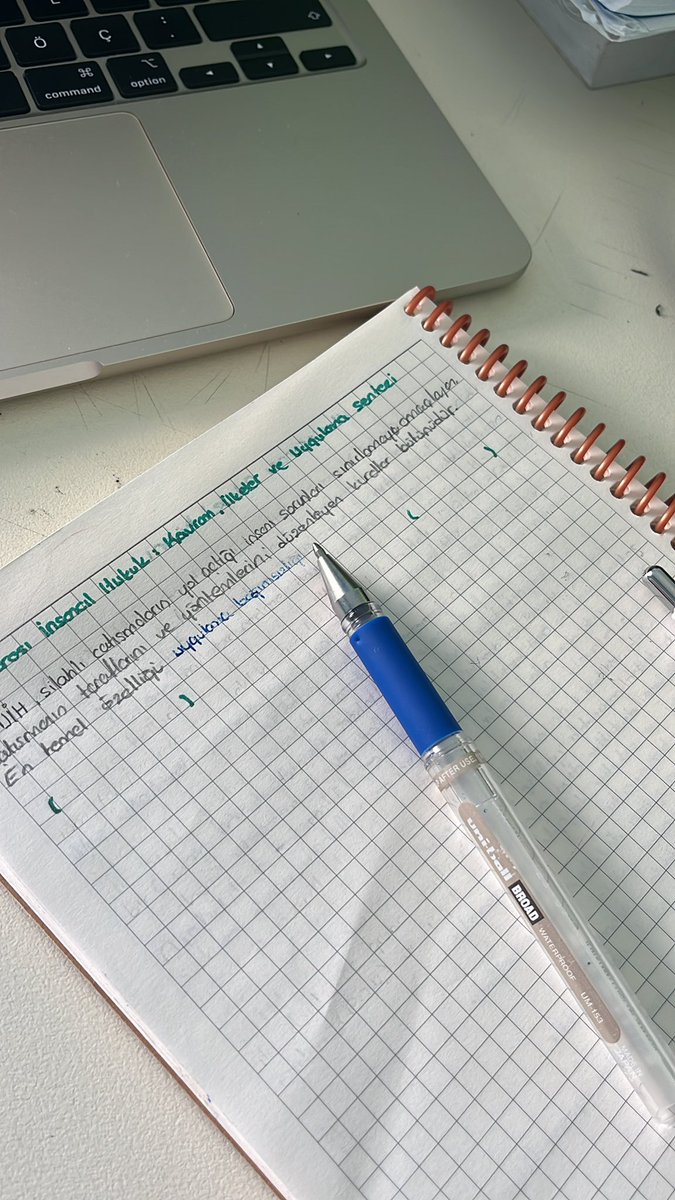 Ö
Ç
:
.
command
⌘
option
⌥
arası İnsancıl Hukuk: Kavram, İlkeler ve Uygulama Sentezi
UİH, silahlı çatışmaların yol açtığı insani sorunları sınırlamayı amaçlayan,
çatışmanın taraflarını ve yöntemlerini düzenleyen kurallar bütünüdür.
En temel özelliği uygulama bağımsızlığı
AFTER USE
uni-ball
BROAD
WATERPROOF
UM-153
MADE IN
JAPAN